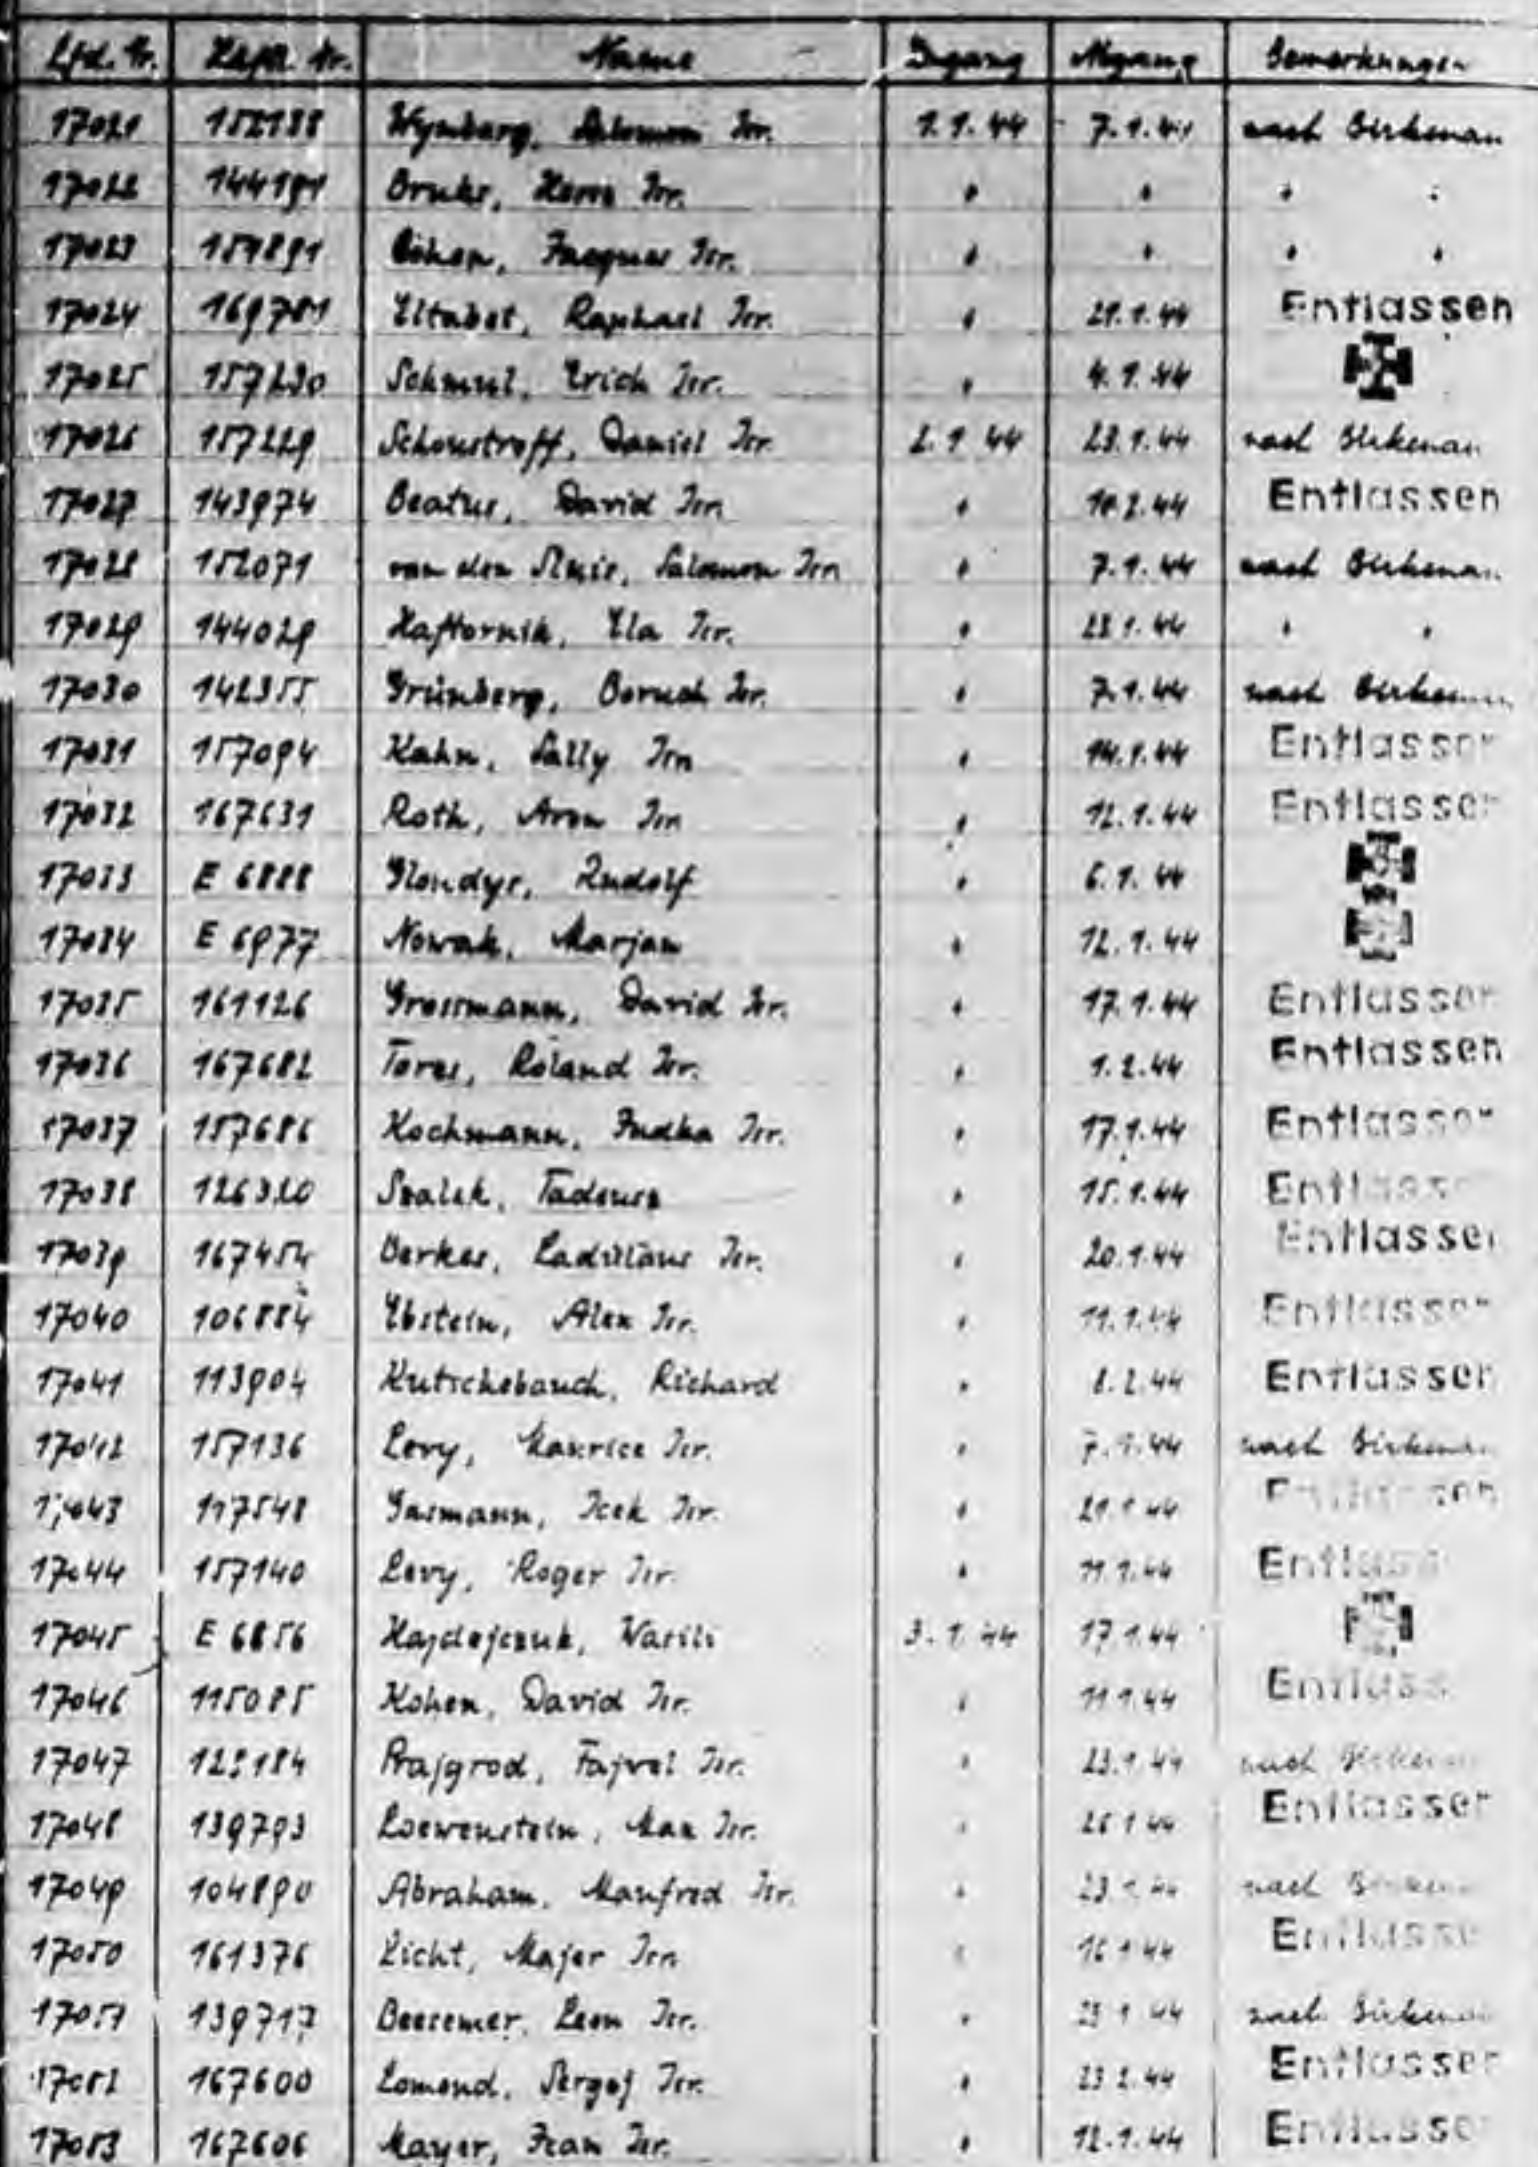 Lfd. Nr. Lfdn. Nr. Name Zugang Abgang Bemerkungen
17021 152188 Wynberg, Salomon Isr. 1.1.44 7.1.44 nach Birkenau
17022 144191 Isr. " " " "
17023 157891 Cohen, Jacques Isr. " " " "
17024 169701 Eltabet, Raphael Isr. " 21.1.44 Entlassen
17025 157230 Schmul, Erich Isr. " 4.1.44
17026 157229 Schoustroff, Daniel Isr. 2.1.44 23.1.44 nach Birkenau
17027 143974 Beatus, David Isr. " 10.2.44 Entlassen
17028 152071 van der Sluis, Salomon Isr. " 7.1.44 nach Birkenau
17029 144029 Haftornik, Ela Isr. " 23.1.44 " "
17030 142355 Grünberg, Boruch Isr. " 7.1.44 nach Birkenau
17031 157094 Kahn, Sally Isr. " 14.1.44 Entlassen
17032 167631 Roth, Aron Isr. " 12.1.44 Entlassen
17033 E 6888 Glondys, Rudolf " 6.1.44
17034 E 6977 Nowak, Marjan " 12.1.44
17035 161126 Grossmann, David Isr. " 17.1.44 Entlassen
17036 167682 Tores, Roland Isr. " 1.2.44 Entlassen
17037 157686 Kochmann, Judka Isr. " 17.1.44 Entlassen
17038 126320 Szalek, Tadeusz " 15.1.44 Entlassen
17039 167454 Berkes, Ladislaus Isr. " 20.1.44 Entlassen
17040 106884 Ebstein, Alex Isr. " 11.1.44 Entlassen
17041 113904 Kutschebauch, Richard " 8.2.44 Entlassen
17042 157136 Levy, Maurice Isr. " 7.1.44 nach Birkenau
17043 117548 Gasmann, Icek Isr. " 21.1.44 Entlassen
17044 157140 Levy, Roger Isr. " 11.1.44 Entlassen
17045 E 6856 Hajdejczuk, Wasili 3.1.44 17.1.44
17046 115085 Kohen, David Isr. " 11.1.44 Entlassen
17047 Prajgrod, Fajvel Isr. " 23.1.44 nach Birkenau
17048 139793 Loewenstein, Max Isr. " 26.1.44 Entlassen
17049 104890 Abraham, Manfred Isr. " 23.1.44 nach Birkenau
17050 161376 Licht, Majer Isr. " 16.1.44 Entlassen
17051 139717 Beesemer, Leon Isr. " 23.1.44 nach Birkenau
17052 167600 Lomond, Sergej Isr. " 23.2.44 Entlassen
17053 167606 Mayer, Jean Isr. " 12.1.44 Entlassen